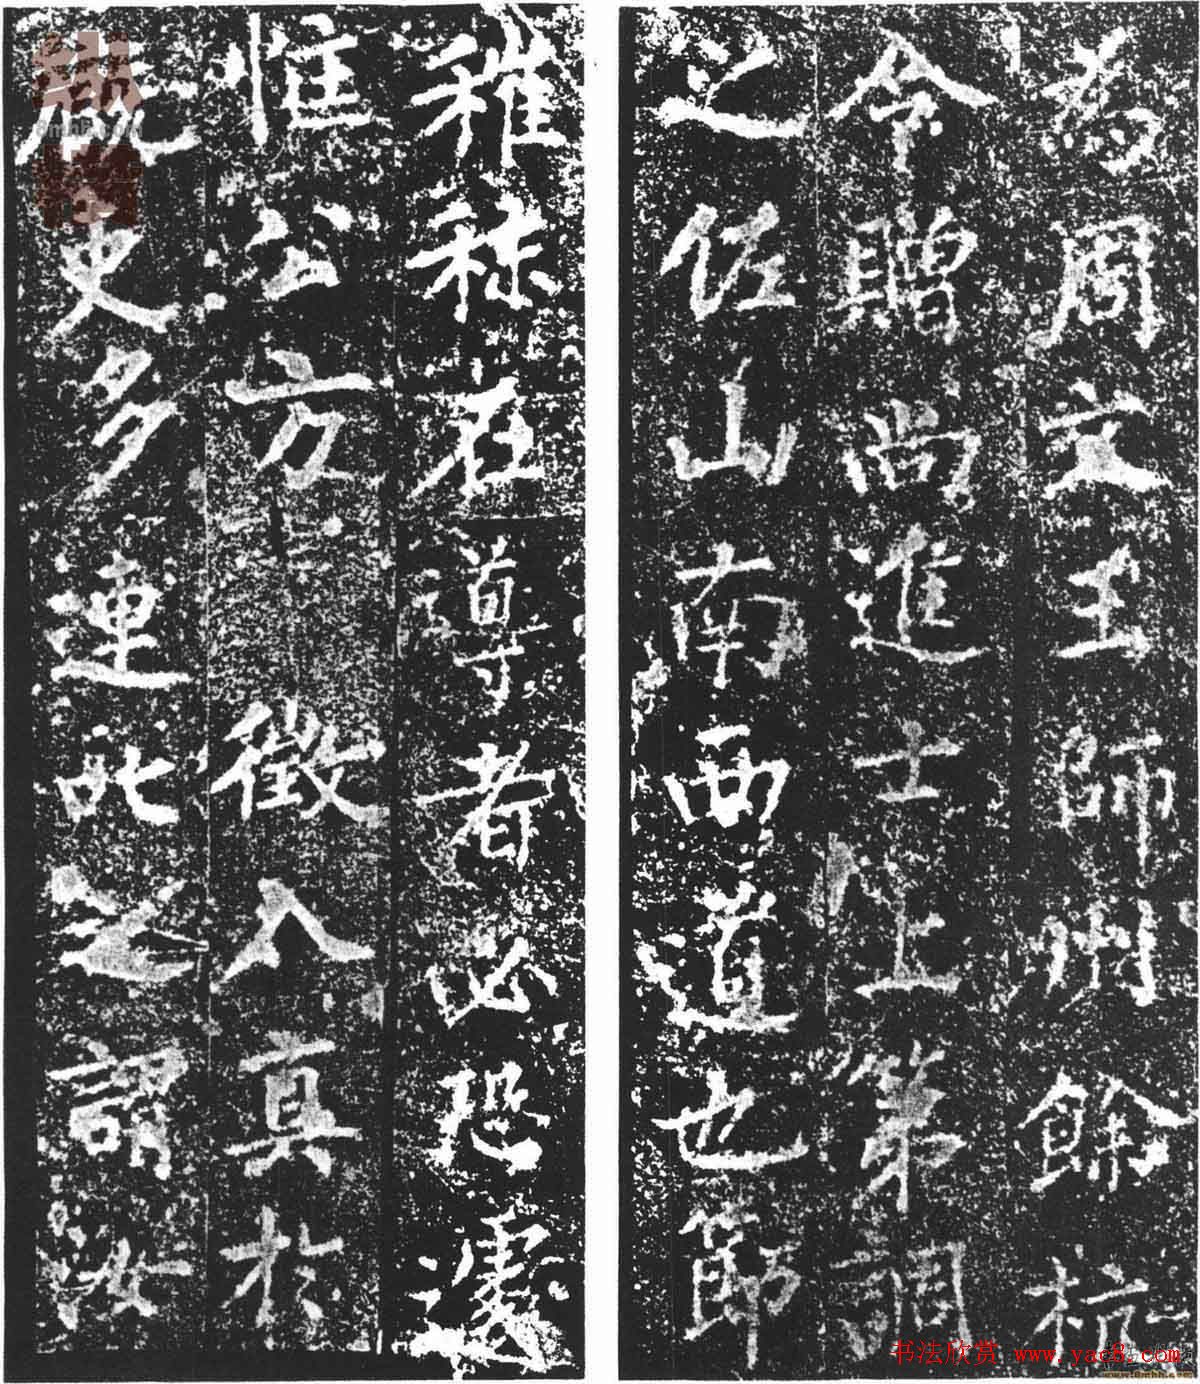 為周文王師州餘杭
令贈尚進士上第調
之佐山南西道也節
稚在導者必恐
惟公方徵入真於
史多連此之謂
8mhh.com
书法欣赏 www.yac8.com
www.8mhh.com